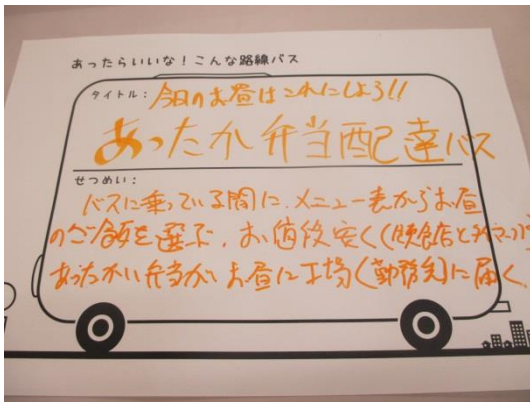 あったらいいな！こんな路線バス
タイトル： 今日のお昼はこれにしよう!!
あったか弁当配達バス
せつめい：
バスに乗っている間に、メニュー表からお昼
のご飯を選ぶ、お値段安く(飲食店とタイマップ)で
あったかい弁当がお昼に工場(勤務先)に届く。